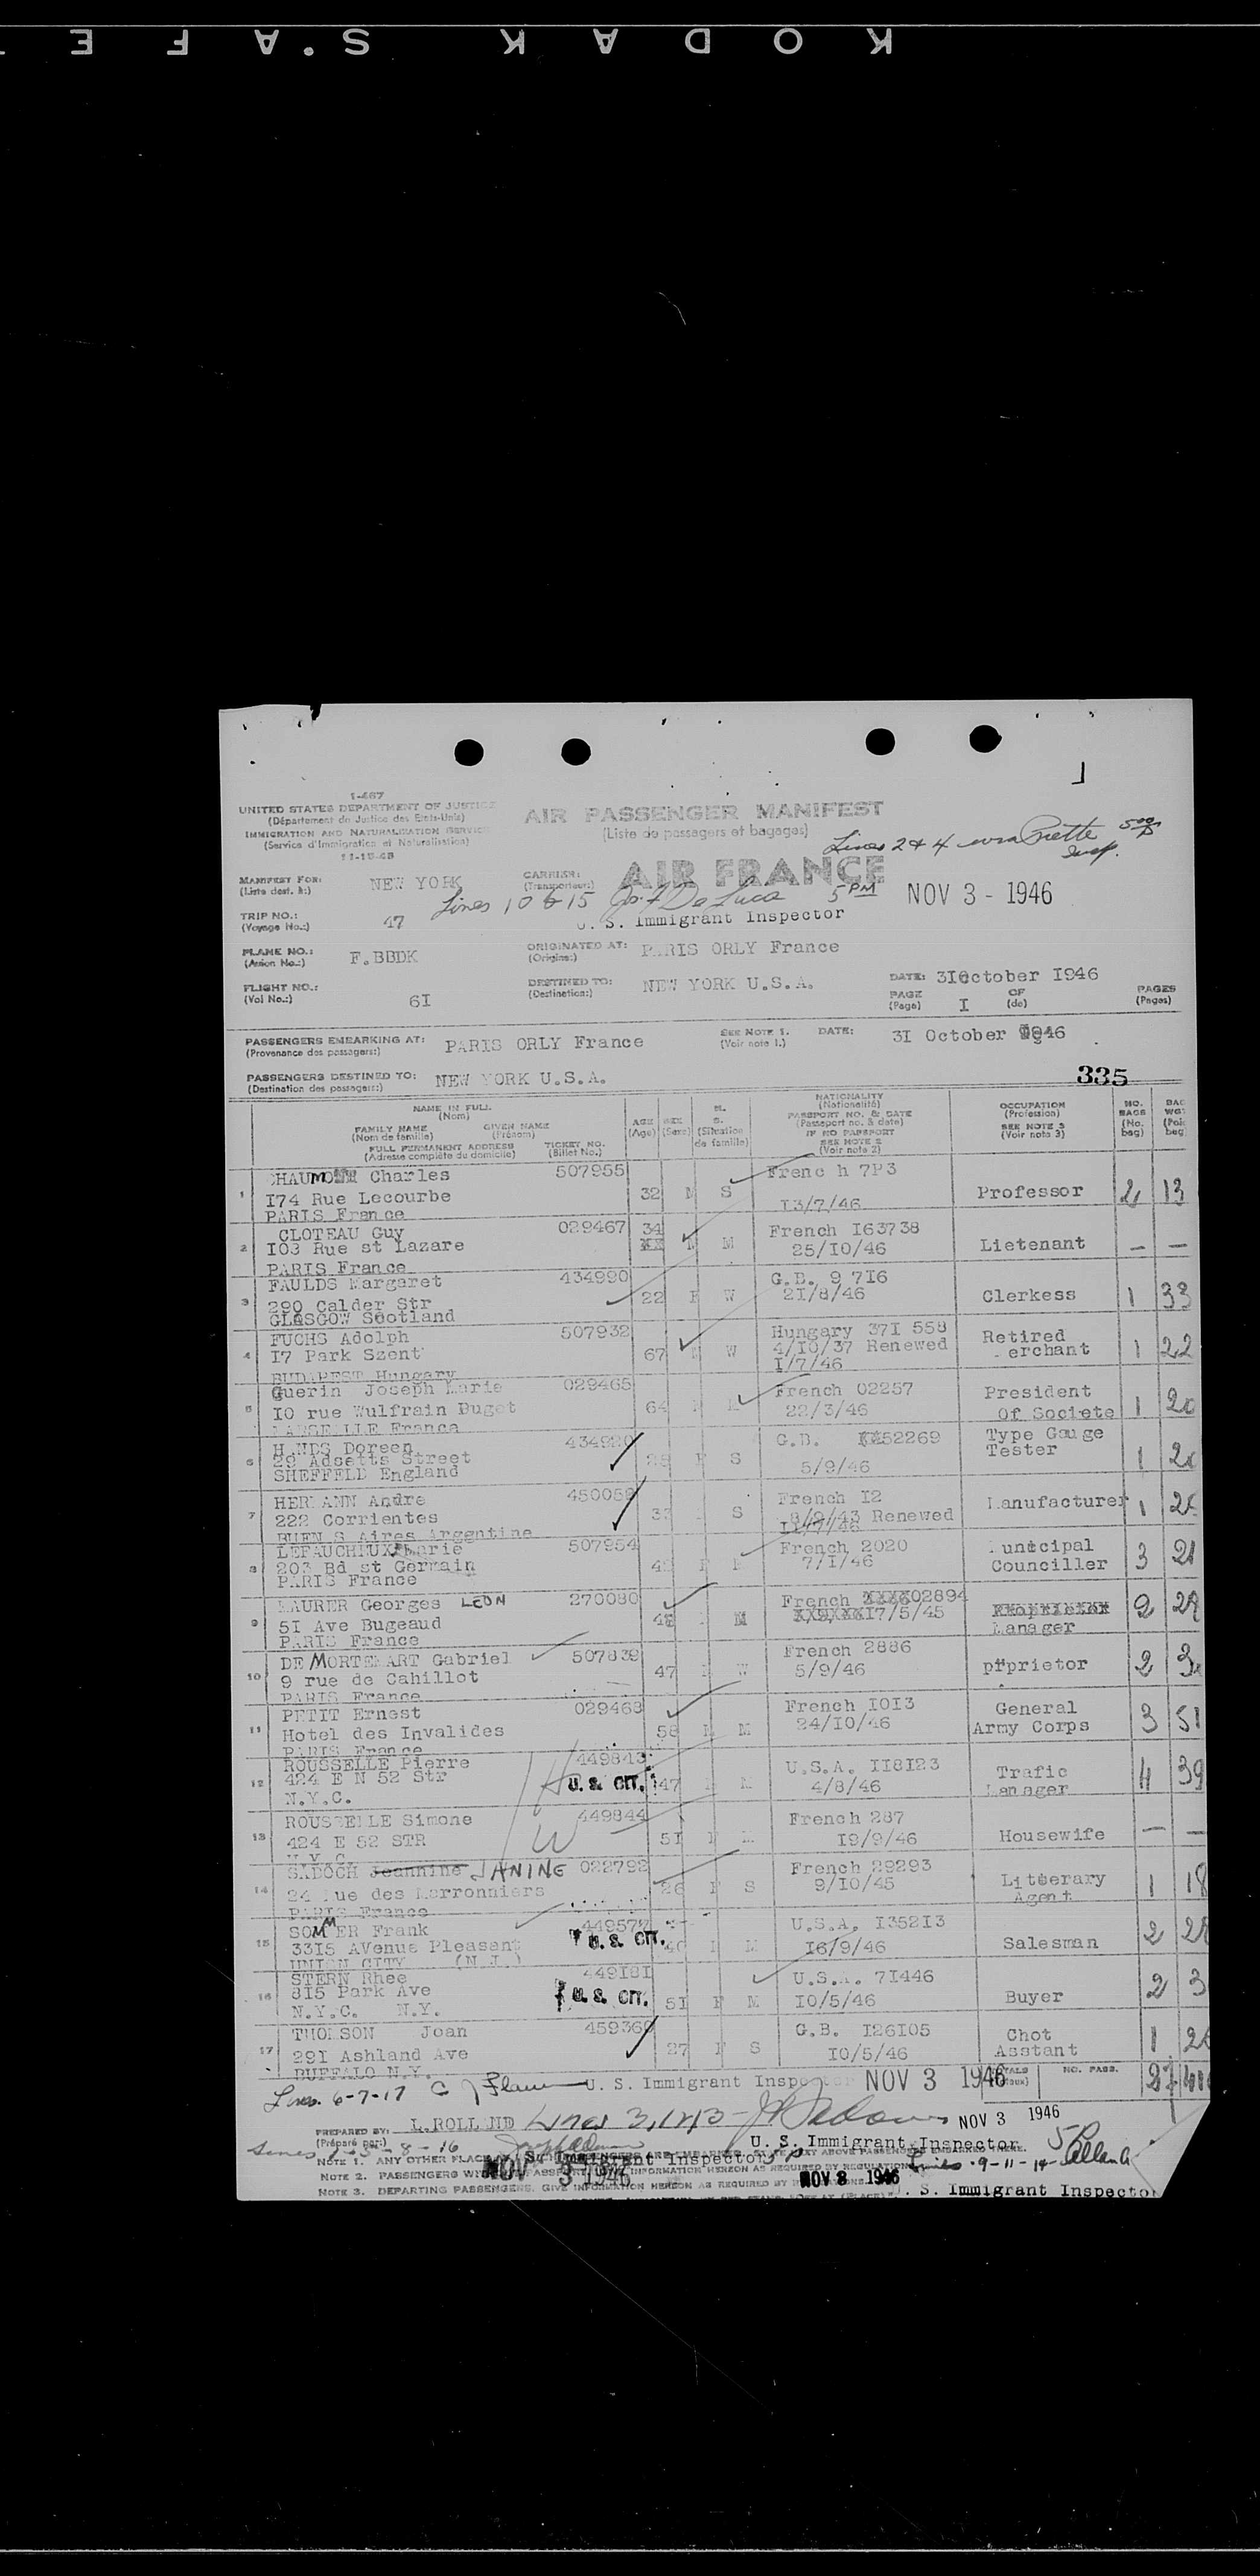 KODAK S.AFE
1-467
UNITED STATES DEPARTMENT OF JUSTICE
(Département de Justice des Etats-Unis)
IMMIGRATION AND NATURALISATION SERVICE
(Service d'Immigration et Naturalisation)
11-15-45
AIR PASSENGER MANIFEST
(Liste de passagers et bagages)
Lines 2 & 4
AIR FRANCE
MANIFEST FOR: NEW YORK
(Liste dest. à:)
CARRIER:
(Transporteur:)
Lines 10 & 15 Jos. F. De Luca 5 PM
NOV 3 - 1946
U. S. Immigrant Inspector
TRIP NO.: 47
(Voyage No.:)
PLANE NO.: F.BBDK
(Avion No.:)
ORIGINATED AT: PARIS ORLY France
(Origine:)
FLIGHT NO.: 6I
(Vol No.:)
DESTINED TO: NEW YORK U.S.A.
(Destination:)
DATE: 3IOctober I946
PAGE I OF PAGES
(Page) (de) (Pages)
PASSENGERS EMBARKING AT: PARIS ORLY France
(Provenance des passagers:)
SEE NOTE 1. DATE: 3I October 1946
(Voir note 1.)
PASSENGERS DESTINED TO: NEW YORK U.S.A.
(Destination des passagers:)
335
NAME IN FULL
(Nom)
FAMILY NAME GIVEN NAME
(Nom de famille) (Prénom)
FULL PERMANENT ADDRESS TICKET NO.
(Adresse complète du domicile) (Billet No.)
AGE
(Age)
SEX
(Sexe)
M.
S.
(Situation
de famille)
NATIONALITY
(Nationalité)
PASSPORT NO. & DATE
(Passeport no. & date)
IF NO PAPSPORT
SEE NOTE 2
(Voir note 2)
OCCUPATION
(Profession)
SEE NOTE 3
(Voir note 3)
NO.
BAGS
(No.
bag)
BAG
WGT
1 CHAUMONT Charles 507955 32 M S Frenc h 7P3 Professor 2 13
I74 Rue Lecourbe I3/7/46
PARIS France
2 CLOTEAU Guy 029467 34 M M French I63738 Lietenant — —
I03 Rue st Lazare 25/I0/46
PARIS France
3 FAULDS Margaret 434990 22 F W G.B. 9 7I6 Clerkess 1 33
290 Calder Str 2I/8/46
GLASGOW Scotland
4 FUCHS Adolph 507932 67 M W Hungary 37I 558 Retired 1 22
I7 Park Szent 4/I0/37 Renewed erchant
BUDAPEST Hungary I/7/46
5 Guerin Joseph Marie 029465 64 French 02257 President 1
I0 rue Wulfrain Puget 22/3/46 Of Societe
MARSEILLE France
6 HANDS Doreen 434920 F S G.B. 52269 Type Gauge 1
29 Adcetts Street 5/9/46 Tester
SHEFFELD England
7 HERMANN Andre 450059 33 S French I2 Manufacturer 1
222 Corrientes Renewed
BUEN S Aires Argentine
8 LEFAUCHEUX Marie 507954 F French 2020 Municipal 3 21
203 Bd st Germain 7/I/46 Counciller
PARIS France
9 MAURER Georges LEON 270080 M French 02894 2 29
5I Ave Bugeaud I7/5/45 Manager
PARIS France
10 DE MORTEMART Gabriel 507839 47 W French 2886 prprietor 2
9 rue de Cahillot 5/9/46
PARIS France
11 PETIT Ernest 029468 58 M M French I0I3 General 3 51
Hotel des Invalides 24/I0/46 Army Corps
PARIS France
12 ROUSSELLE Pierre 449843 47 M M U.S.A. II8I23 Trafic 4 39
424 E N 52 Str U. S. CIT. 4/8/46 Manager
N.Y.C.
13 ROUSSELLE Simone 449844 5I F M French 287 Housewife — —
424 E 52 STR W I9/9/46
N.Y.C.
14 SADOCH Jeannine JANINE 022792 26 F S French 29293 Litterary 1 18
24 rue des Marronniers 9/I0/45 Agent
PARIS France
15 SOMMER Frank 449578 M U.S.A. I352I3 Salesman 2
33I5 AVenue Pleasant U. S. CIT. I6/9/46
UNION CITY (N.J.)
16 STERN Rhee 449I8I 5I F M U.S.A. 7I446 Buyer 2 3
8I5 Park Ave U. S. CIT. I0/5/46
N.Y.C. N.Y.
17 THOMSON Joan 459360 27 F S G.B. I26I05 Chot 1
29I Ashland Ave I0/5/46 Asstant
BUFFALO N.Y.
Lines 6-7-17 U. S. Immigrant Inspector NOV 3 1946 NO. PASS. 27
PREPARED BY: L.ROLLAND Lines 3, NOV 3 1946
(Préparé par:)
U. S. Immigrant Inspector
Lines 9-11-14
NOTE 1. ANY OTHER PLACE
NOV 3 1946
NOTE 2. PASSENGERS INFORMATION HEREON AS REQUIRED BY REGULATION
NOV 3 1946
NOTE 3. DEPARTING PASSENGERS. GIVE INFORMATION HEREON AS REQUIRED BY
. S. Immigrant Inspector